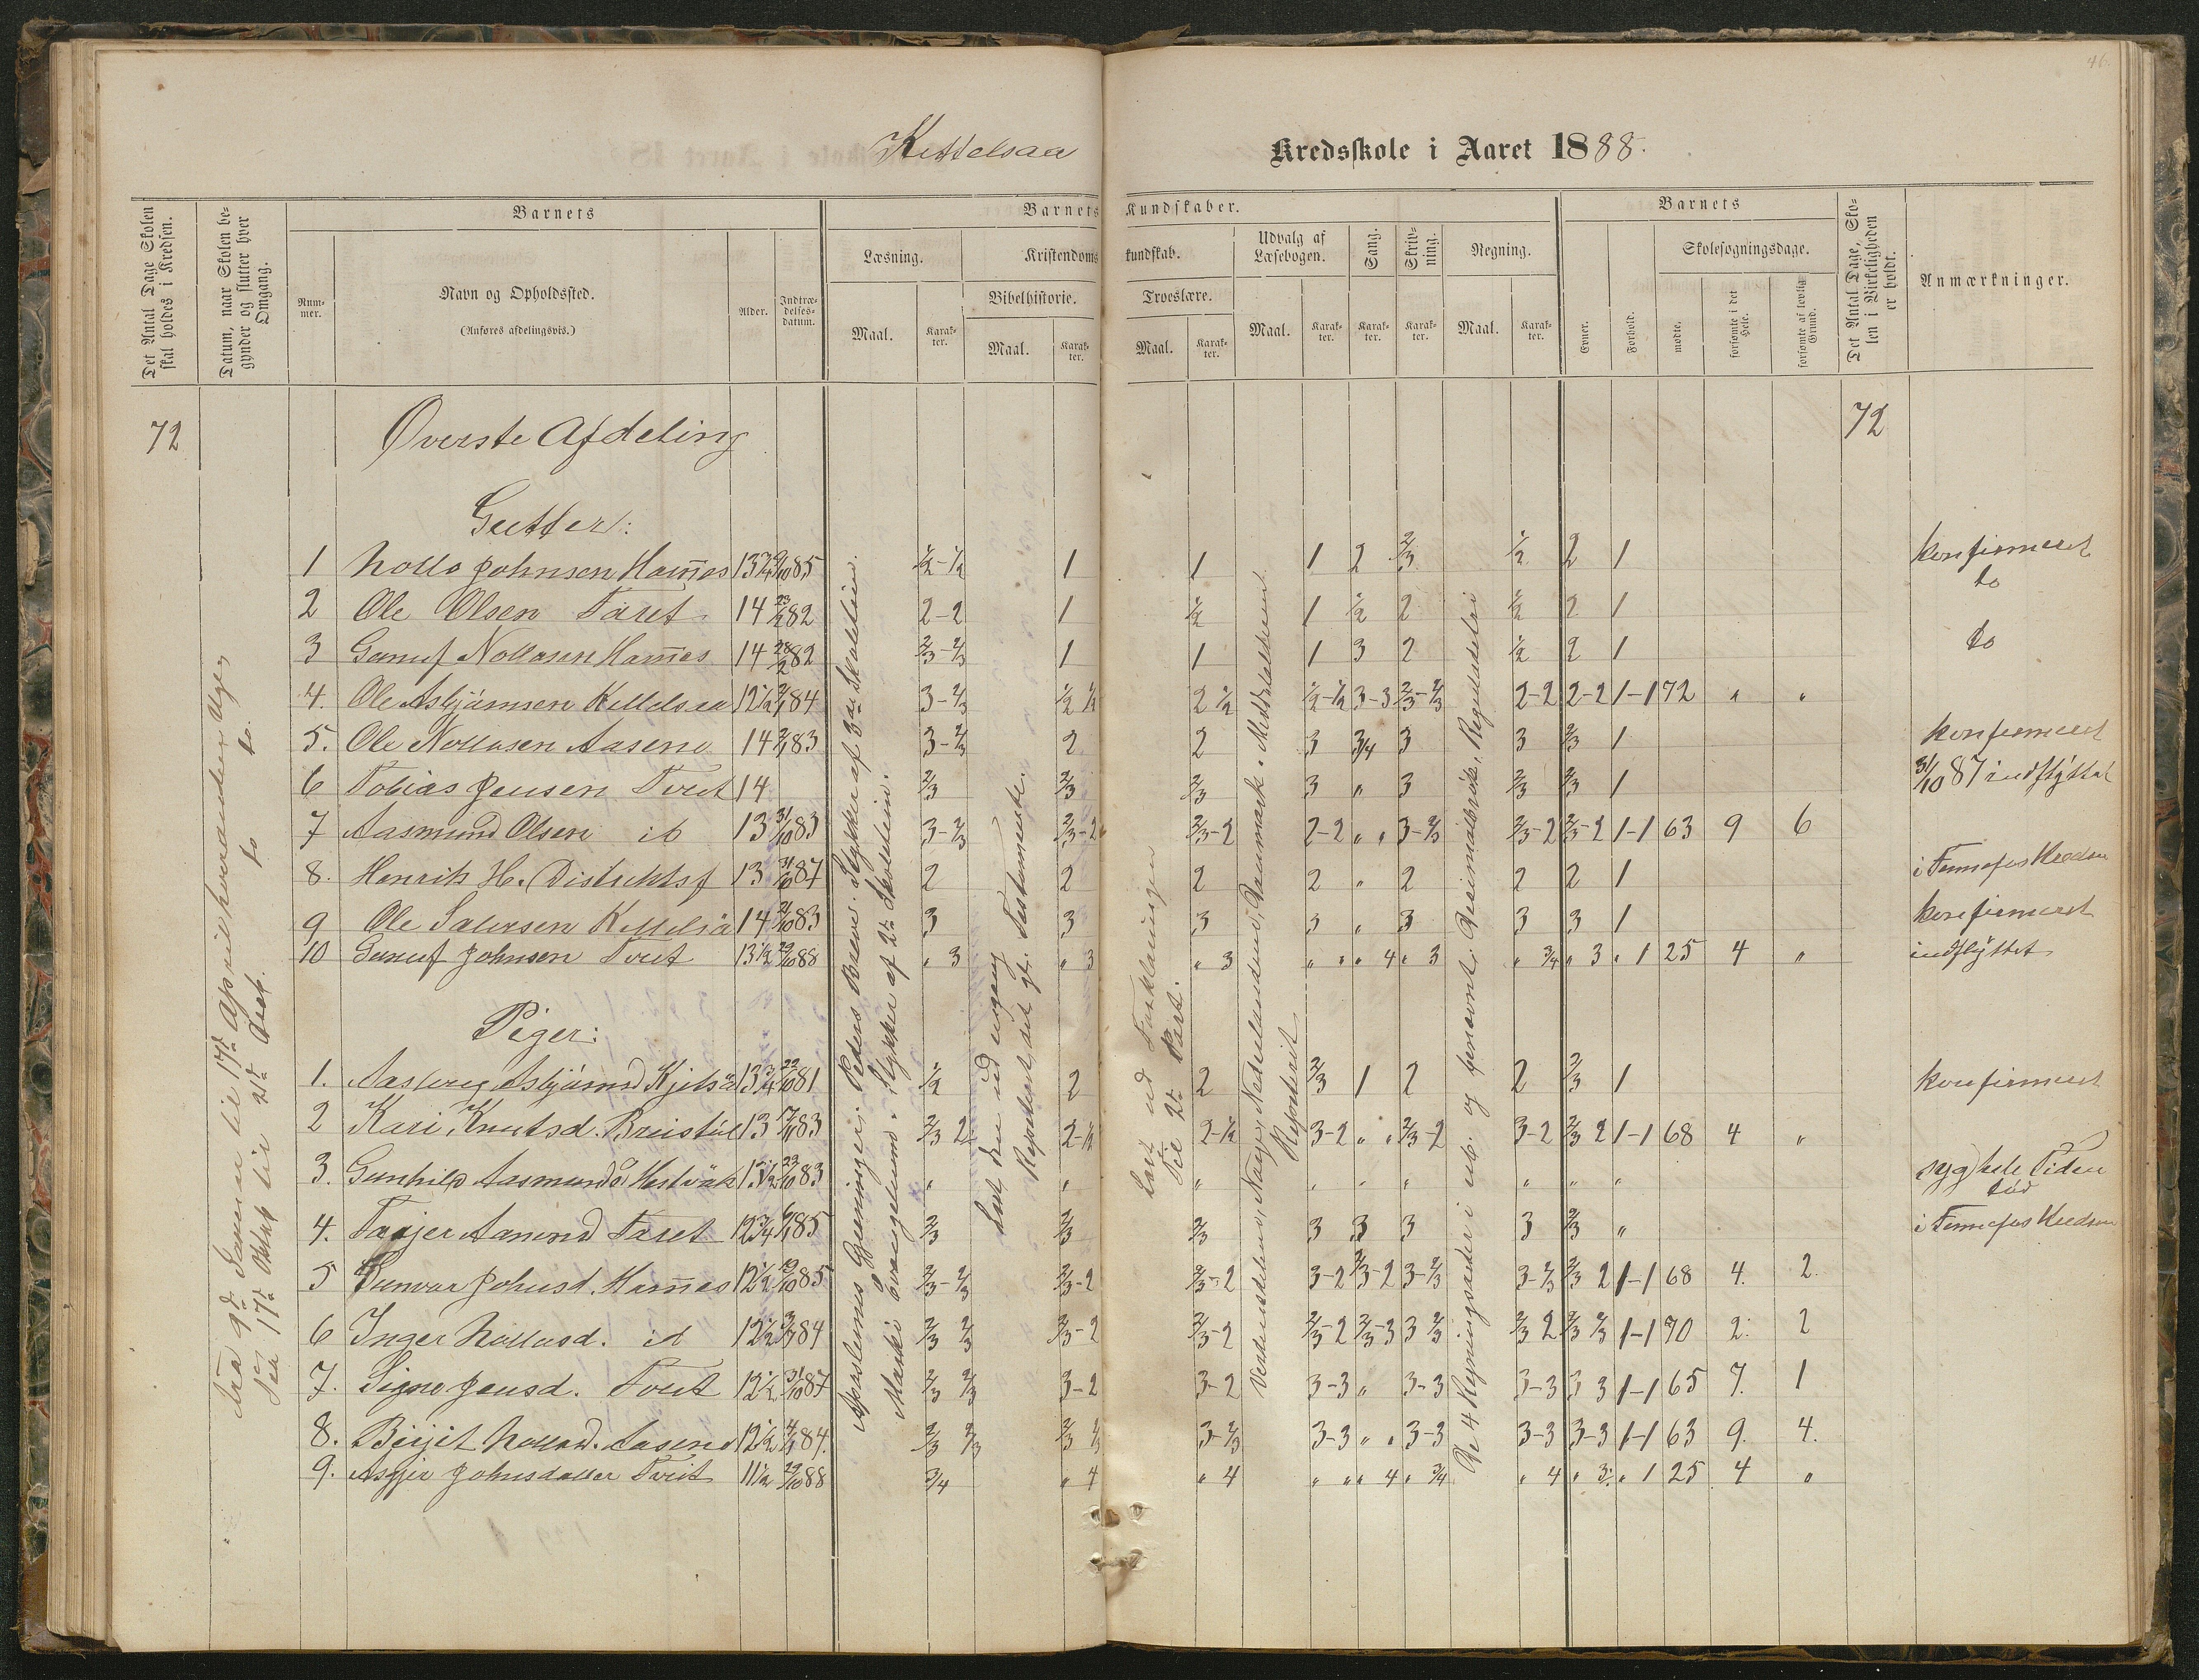 46.
Kettelsaa Kredsskole i Aaret 1888.
Det Antal Dage Skolen skal holdes i Kredsen.
Datum, naar Skolen begynder og slutter hver Omgang.
Barnets
Nummer.
Navn og Opholdssted.
(Anføres afdelingsvis.)
Alder.
Indtrædelsesdatum.
Barnets Kundskaber.
Læsning.
Maal.
Karakter.
Kristendomskundskab.
Bibelhistorie.
Maal.
Karakter.
Troeslære.
Maal.
Karakter.
Udvalg af Læsebogen.
Maal.
Karakter.
Sang.
Karakter.
Skrivning.
Karakter.
Regning.
Maal.
Karakter.
Barnets
Evner.
Forhold.
Skolesøgningsdage.
mødte.
forsømte i det Hele.
forsømte af lovlig Grund.
Det Antal Dage, Skolen i Virkeligheden er holdt.
Anmærkninger.
72 Øverste Afdeling 72
Gutter:
1 Nollo Johnsen Hamnes 13 3/4 85 1/2-1/2 1 1 1 2 2/3 1/2 2 1 konfirmeret
2 Ole Olsen Taret 14 82 2-2 1 1/2 1 1/2 2 1/2 2 1 do
3 Gunuf Nollosen Hamnes 14 82 2/3-2/3 1 1 1 3 2 1/2 2 1 do
4. Ole Asbjørnsen Kettelsaa 12 1/2 84 3-2/3 1/2 1/2 2 1/2 1/2-1/2 3-3 2/3-2/3 2-2 2-2 1-1 72 " "
5. Ole Nollosen Aasene 14 83 3-2/3 2 2 3 3/4 3 3 2/3 1 konfirmeret
6 Tobias Jensen Tveit 14 2/3 2/3 2/3 3 " 3 2/3 2/3 1 31/10 87 indflyttet
7 Aasmund Olsen ib 13 31/10 83 3-2/3 2/3-2 2/3-2 2-2 " " 3-2/3 2/3-2 2/3-2 1-1 63 9 6
8. Henrik H. 13 31/10 87 2 2 2 2 " 2 2 2 1 i Kredsen
9 Ole Salvesen Kettelsaa 14 83 3 3 3 3 " 3 3 3 1 konfirmeret
10 Gunuf Johnsen Tveit 13 1/2 88 " 3 " 3 " 3 " " " 4 " 3 " 3/4 " 3 " 1 25 4 " indflyttet
Piger:
1. Aasbjørnsd 13 3/4 81 1/2 2 2 2/3 1 2 2 2/3 1 konfirmeret
2 Kari Knutsd. 13 83 2/3 2 2-1/2 2-1/2 3-2 " " 2/3-2 3-2 2/3 2 1-1 68 4 "
3. Gunhild Aasmundsd 83 " " " " " " " " " syg hele Tiden
død
4. Aamund Taret 12 3/4 85 2/3 2/3 2/3 3 3 3 3 2/3 " i Kredsen
5 Gunvor Johnsd. Hamnes 12 1/2 85 2/3-2/3 2/3-2 2/3-2 3-2 2/3-2 3-2/3 3-2/3 2/3 2 1-1 68 4. 2.
6 Inger Nollosd. ib 12 1/2 84 2/3 2/3 2/3-2 2/3-2 2/3-2 2/3-3 3 2/3 2/3 2 2/3 2/3 1-1 70 2. 2
7. Signe Jensd. Tveit 12 1/2 31/10 87 2/3 2/3 3-2 3-2 3-3 " 3-3 3-3 3 3 1-1 65 7. 1
8. Birgit Nollosd. Aasene 12 1/2 84. 2/3 2/3 2/3 2/3 3-2/3 3-3 " " 3-3 3-3 3-3 1-1 63 9. 4.
9. Johnsdatter Tveit 11 1/2 88 3/4 " 4 " 4 " " " 4 " 3/4 " 4 " 3. " 1 25 4 "
Fra 9de Januar til 17de April hverandre Uge
Fra 17de Oktob til 21de Deck.
Apostlernes Gjerninger. Peders Breve. Stykker af 3die Skoletrin.
Marki Evangelium. Stykker af 2det Skoletrin.
Læst den ud engang
Repeteret det gl. Testamente.
Læst ud Forklaringen
Til 2den Part.
Verdensdelene, Norge, Nederlandene, Danmark. Middelalderen
Repeteret
De 4 Regningsarter i ub. og benævnt. Decimalbrøk, Reguladetri